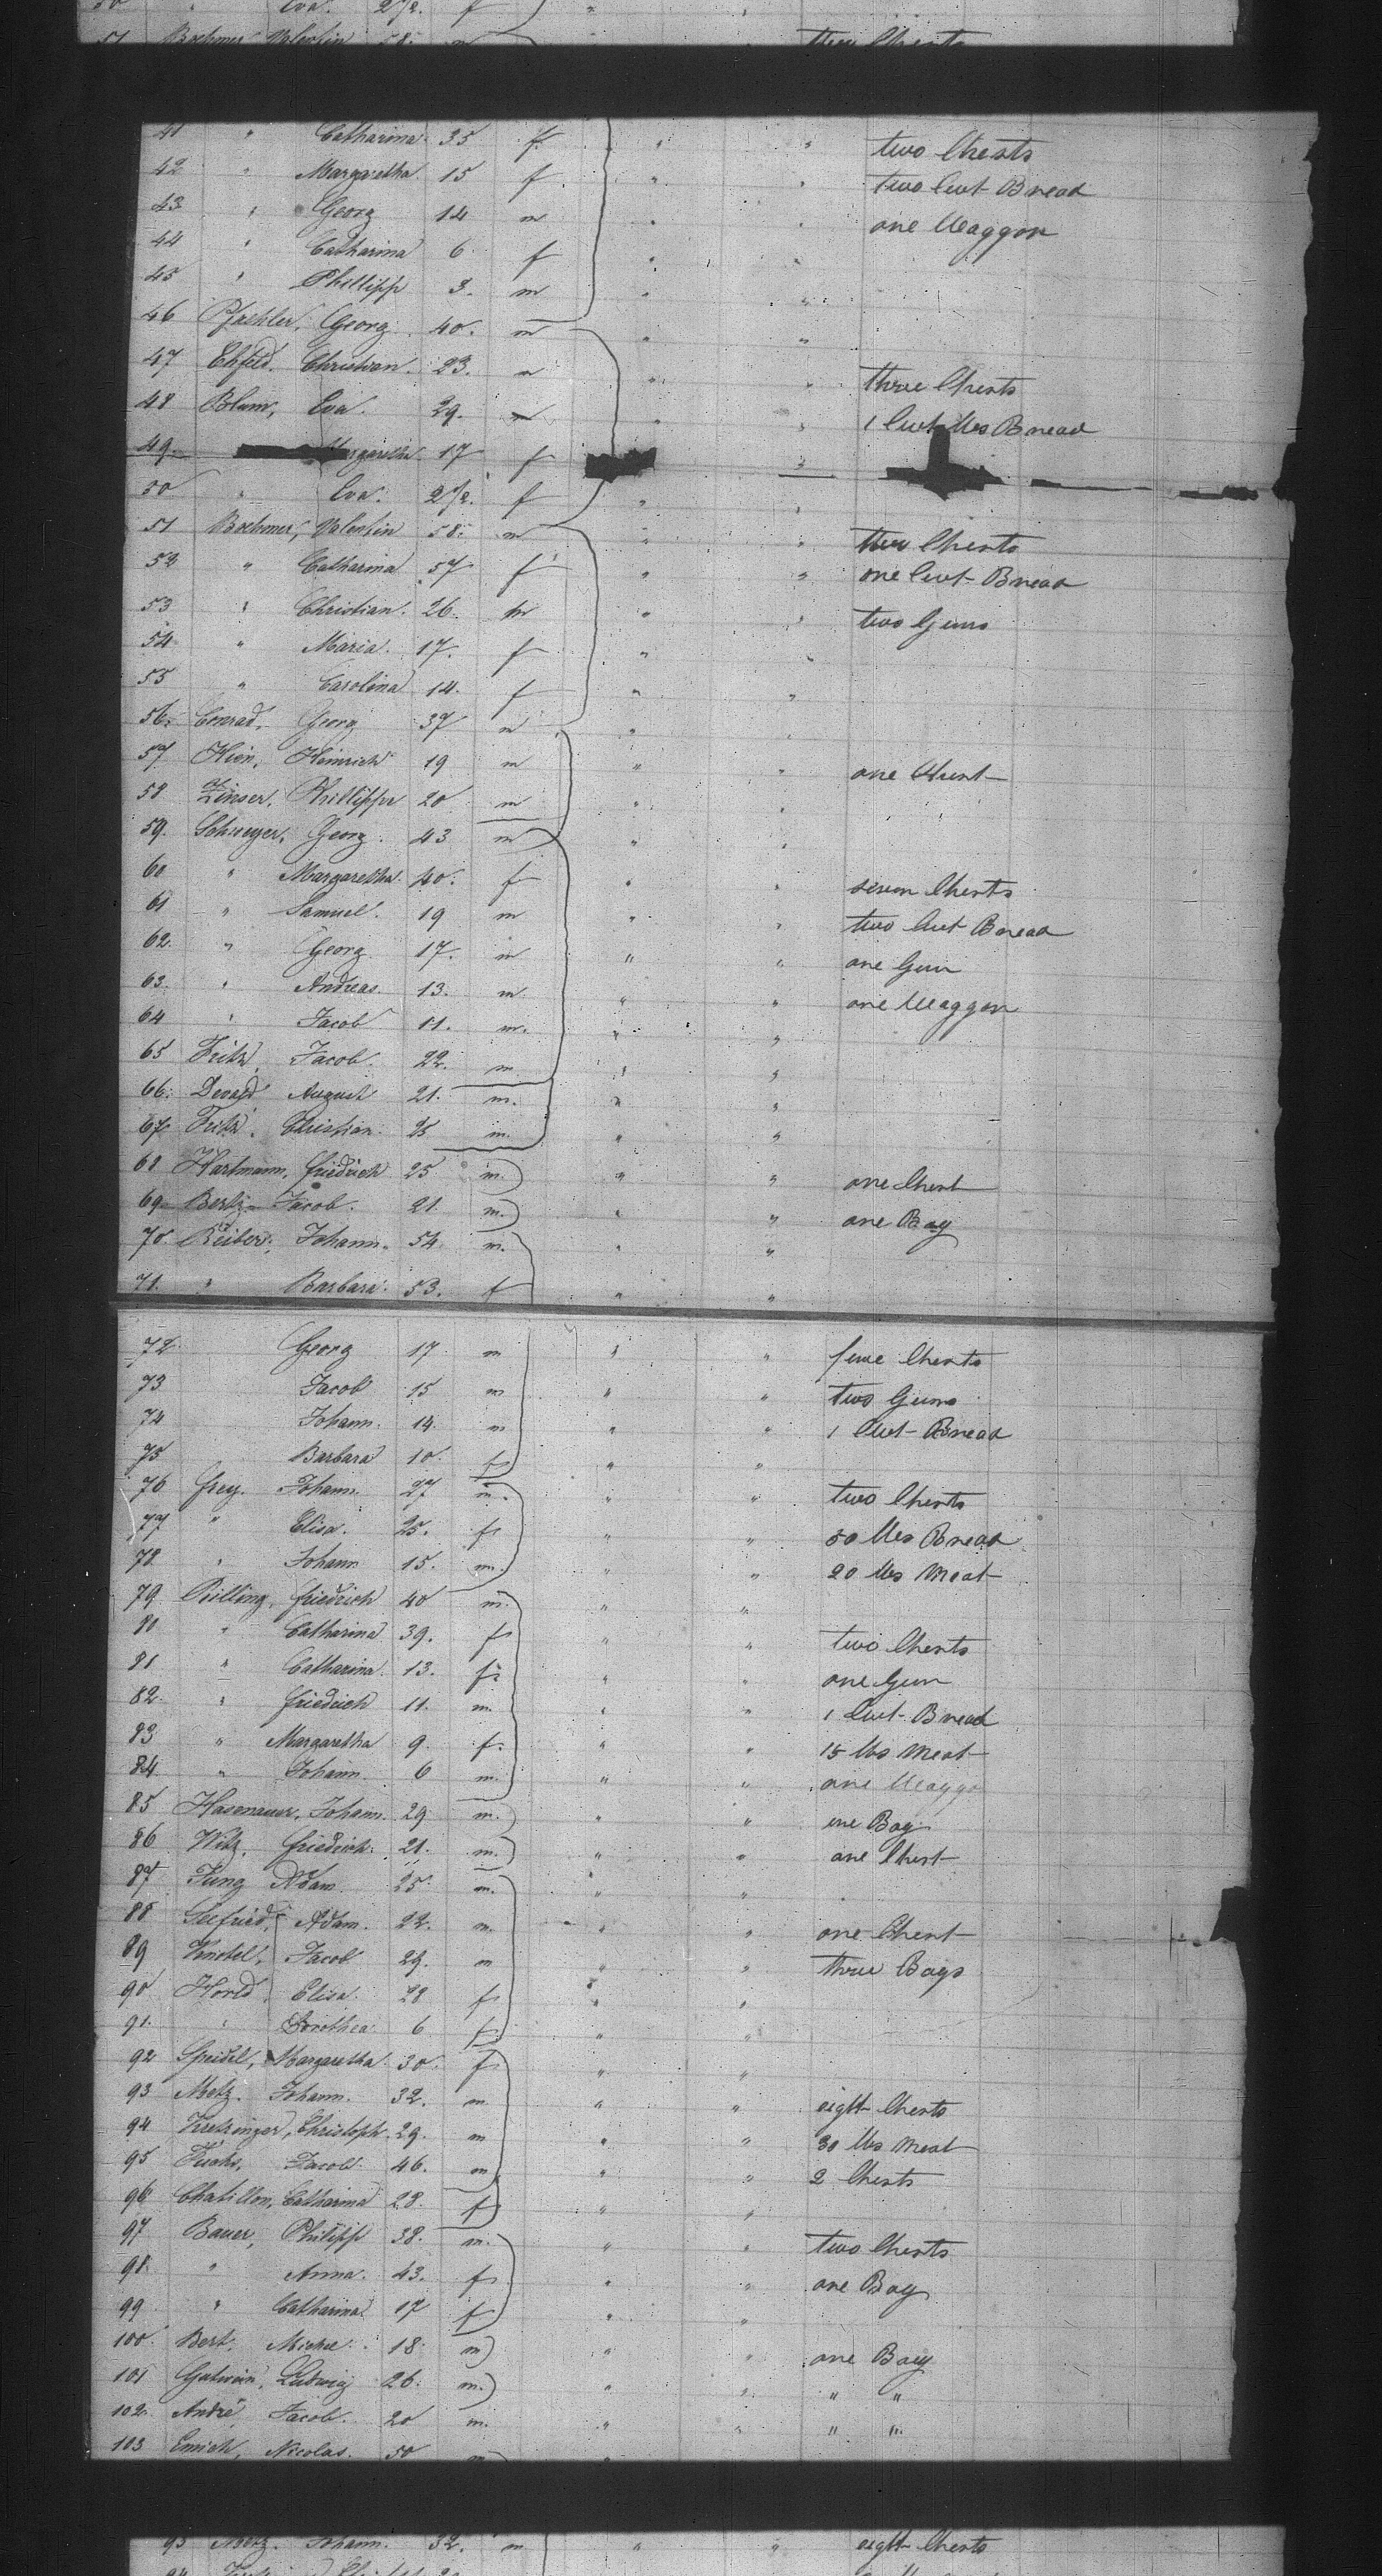 Eva. 2/2. f "
51 Boehmer Valentin 58. m
41 " Catharina 35 f " " two Chests
42 " Margaretha 15 f " " two Cwt Bread
43 " Georg 14 m " " one Waggon
44 " Catharina 6 f " "
45 " Phillipp 3. m " "
46 Georg 40. m " "
47 Christian 23. m " " three Chests
48 Blum, Eva. 29. " " 1 Cwt lbs Bread
49 17 f "
50 " Eva. 2/2. f " "
51 Boehmer, Valentin 58. m " " Chests
52 " Catharina 57 f " " one Cwt Bread
53 " Christian. 26. m " " two Guns
54 " Maria. 17. f " "
55 " Carolina 14. f " "
56. Conrad, Georg 37 m " "
57 Heinrich 19 m " " one Chest
58 Zinser, Phillipp 20 m " "
59. Georg. 43 m " "
60 " Margaretha. 40. f " " seven Chests
61 " Samuel. 19 m " " two Cwt Bread
62. " Georg 17. m " " one Gun
63. " Andreas. 13. m " " one Waggon
64 " Jacob 11. m. " "
65 Fritz, Jacob. 22. m " "
66. August 21. m. " "
67 Fritz, Christian. 25 m. " "
68 Hartmann, Friedrich 25 m. " " one Chest
69 Jacob. 21. m. " " one Bag
70. Johann. 54 m. " "
71. " Barbara. 53. f " "
72 Georg 17 m " " Chests
73 Jacob 15 m " " two Guns
74 Johann. 14. m " " 1 Cwt Bread
75 Barbara 10. f " "
76 Frey. Johann. 27 m. " " two Chests
77 " Elisa. 25. f " " 50 lbs Bread
78. " Johann 15. m. " " 20 lbs Meat
79 Friedrich 40 m. " "
80 " Catharina 39. f " " two Chests
81 " Catharina. 13. f. " " one Gun
82. " Friedrich 11. m. " " 1 Cwt Bread
83 " Margaretha 9. f. " " 15 lbs Meat
84. " Johann. 6 m. " " one
85 Hasenauer, Johann. 29. m. " " one Bag
86 Witz, Friedrich. 21. m. " " one Chest
87 Jung Adam. 25 m. " "
88 Seefried, Adam. 22. m. " " one Chest
89 Jacob 29. m " " three Bags
90 Elisa. 28 f " "
91. " Dorothea 6 f " "
92 Speidel, Margaretha. 30. f " "
93 Metz. Johann. 32. m " " eight Chests
94 Christoph. 29. m " " 30 lbs Meat
95 Fuchs, Jacob. 46. m " " 2 Chests
96 Chatillon, Catharina 28. f " "
97 Bauer, Philipp 38. m. " " two Chests
98. " Anna. 43. f " " one Bag
99 " Catharina. 17 f " "
100. Bert. 18. m " " one Bag
101 Ludwig 26. m. " " " "
102 André Jacob. 20 m. " " " "
103 Emich, Nicolas. 50 m "
93 Metz. Johann. 32. m " " eight Chests